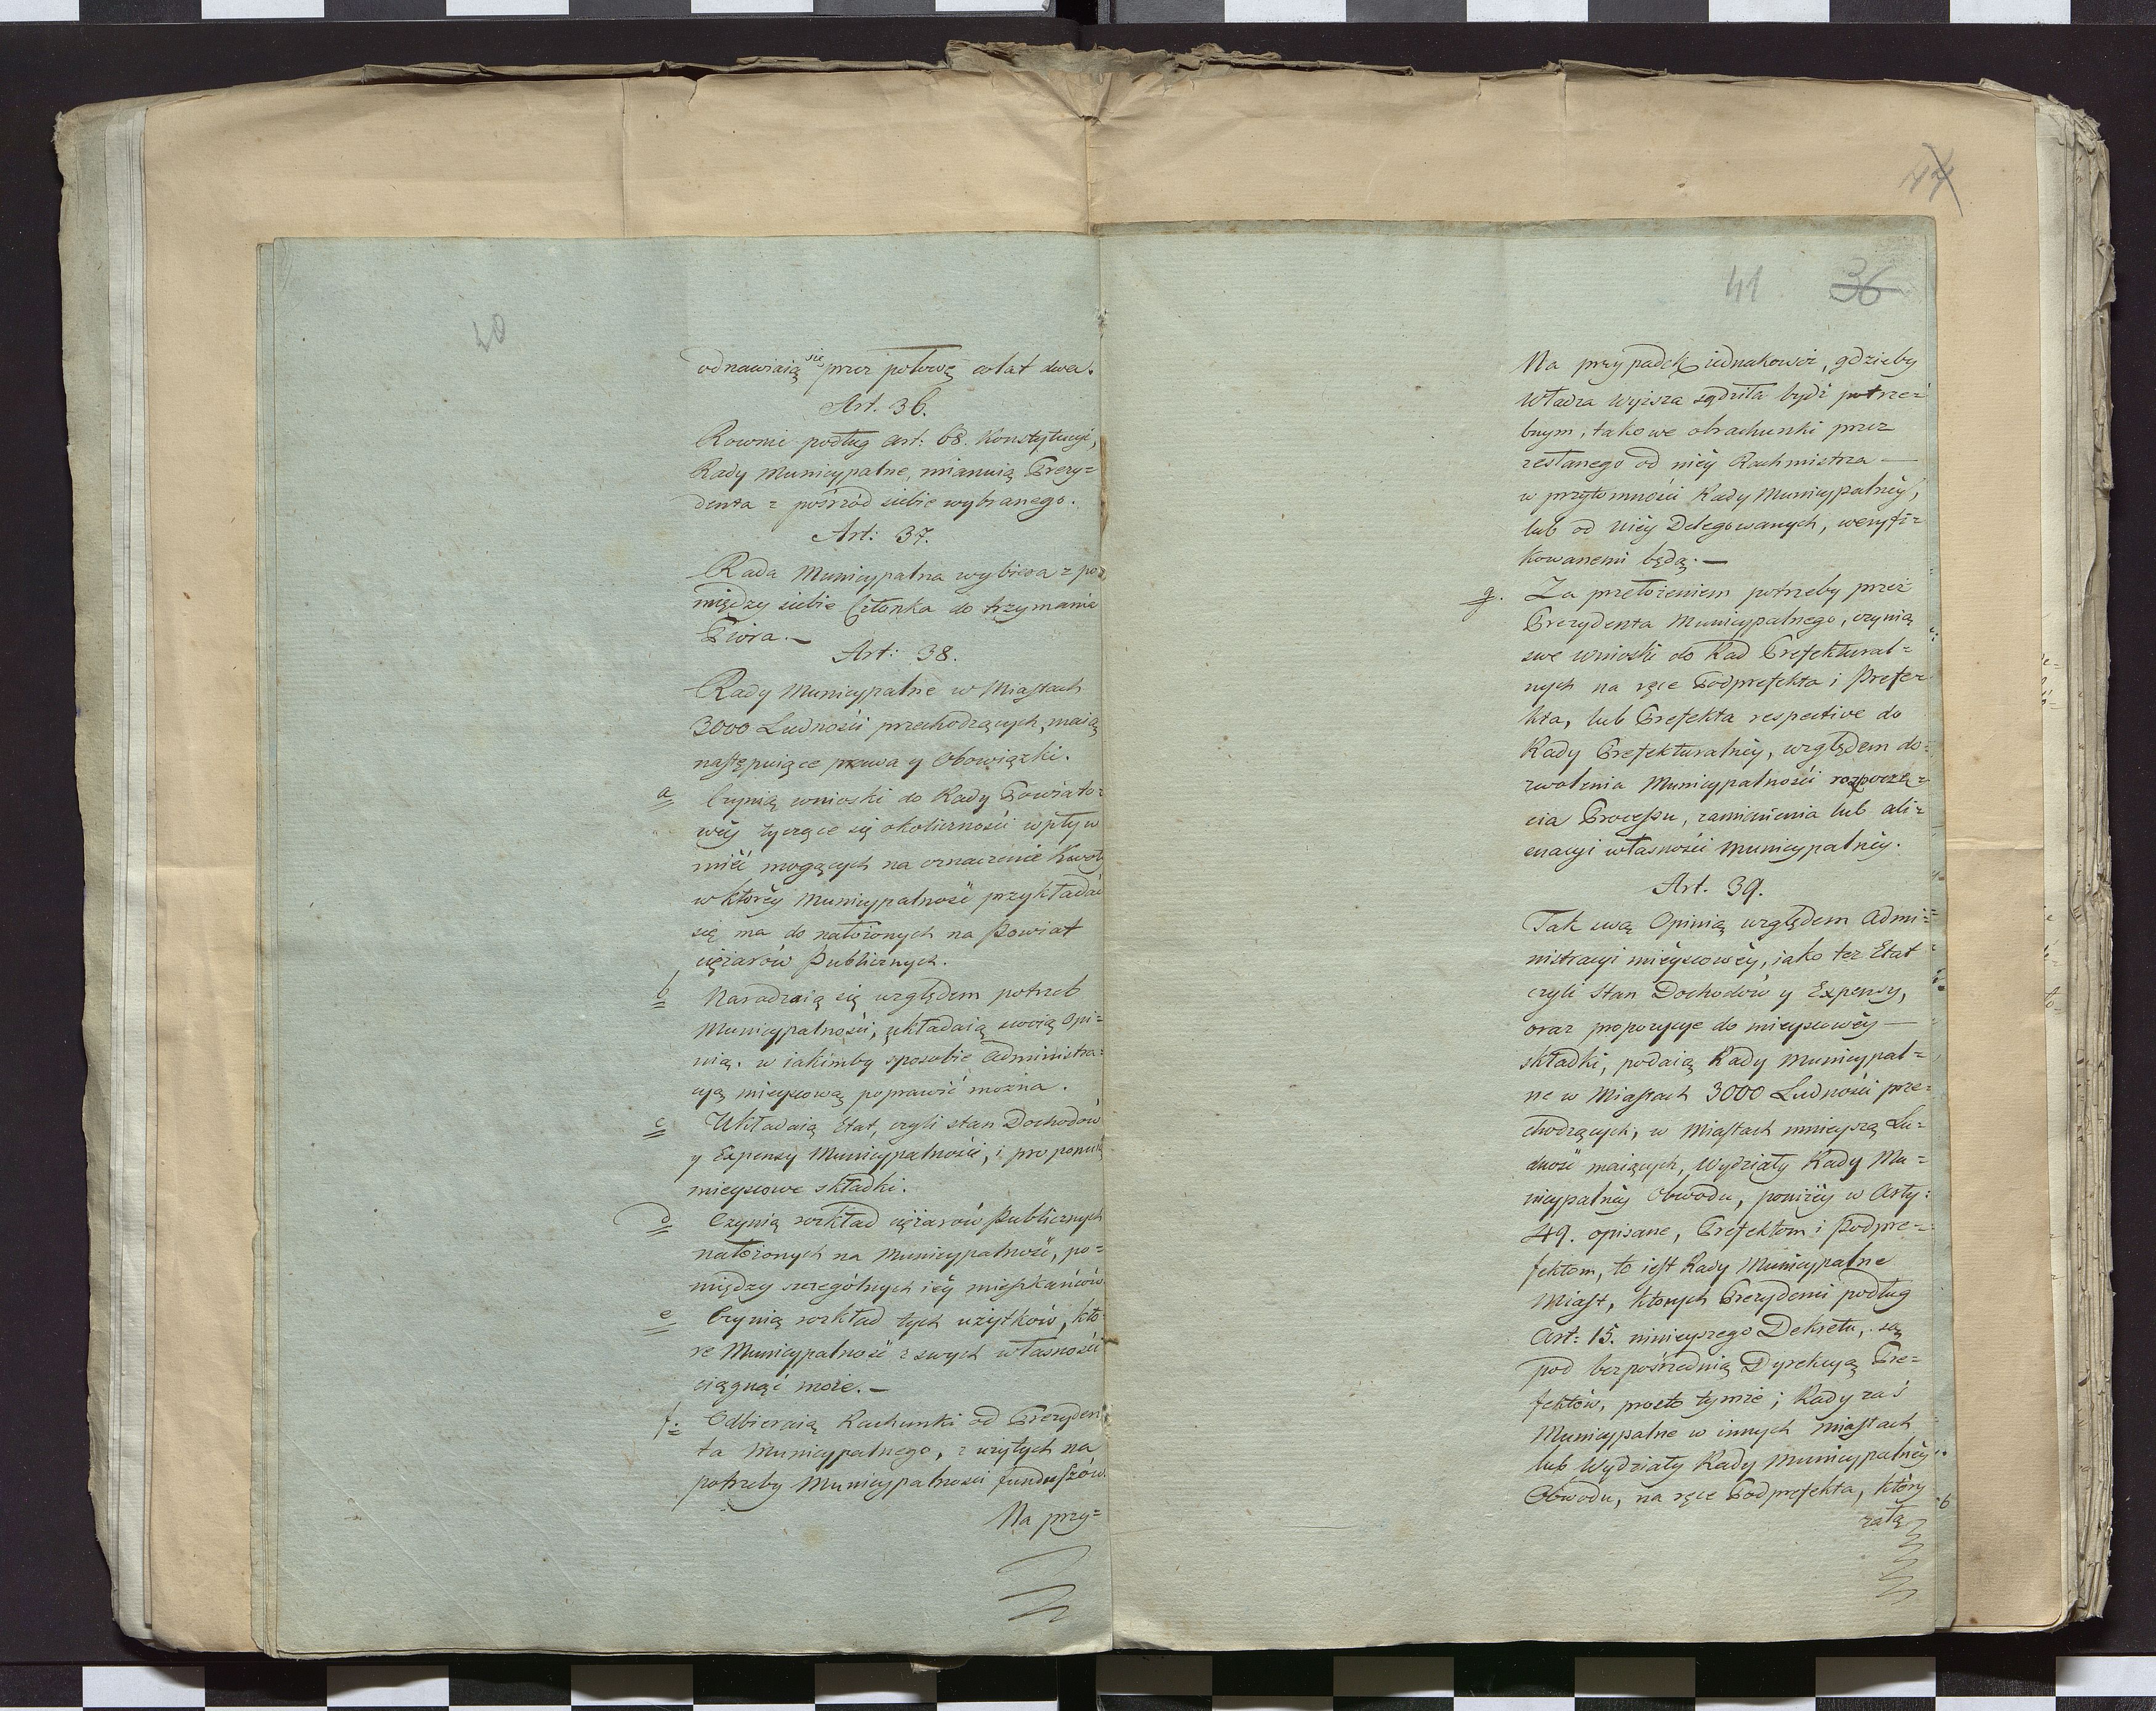 40
odnawiaią się przez połowę colat dwa.
Art. 36.
Rownie podług art: 68. Konstytucyi,
Rady Municypalne, mianuią Prezy=
denta z pośrzód siebie wybranego.
Art: 37.
Rada Municypalna wybiera z po=
między siebie Członka do trzymania
Piora.—
Art: 38.
Rady Municypalne w Miastach
3000 Ludności przechodzących, maią
następuiące prawa y Obowiązki.
a Czynią wnioski do Rady Powiato=
wéy tyczące się okoliczności wpływ
mieć mogących na oznaczenie Kwoty
w któréy Municypalność przykładać
się ma do nałożonych na Powiat
ciężarów Publicznych.
b Naradzaią się względem potrzeb
Municypalności, układaią swoią Opi=
nią. w iakimby sposobie administra=
cyą mieyscową poprawić można.
c Układaią Etat, czyli stan Dochodów
y Expensy Municypalności, i proponuią
mieyscowe składki.
d Czynią rozkład ciężarów Publicznych
nałożonych na Municypalność, po=
między szczególnych iéy mieszkańców.
e Czynią rozkład tych użytków, któ
re Municypalność z swych własności
ciągnąć może.—
f. Odbieraią Rachunki od Prezyden
ta Municypalnego, z użytych na
potrzeby Municypalności funduszów.
Na przy=
44
41 36
Na przypadek iednakowoż, gdzieby
Władza Wyższa sądziła bydź potrze=
bnym, takowe obrachunki przez
zesłanego od niéy Rachmistrza —
w przytomności Rady Municypalnéy,
lub od niéy Delegowanych, weryfi=
kowanemi będą.—
g. Za przełożeniem potrzeby przez
Prezydenta Municypalnego, czynią
swe wnioski do Rad Prefektural=
nych na ręce Podprefekta i Prefe=
kta, lub Prefekta respective do
Rady Prefekturalnéy, względem do=
zwolenia Municypalności rozpoczę=
cia Processu, zamienienia lub ali=
enacyi własności Municypalnéy.
Art. 39.
Tak swą Opinią względem Admi=
nistracyi miéyscowéy, iako też Etat
czyli Stan Dochodów y Expensy,
oraz propozycye do mieyscowéy —
składki, podaią Rady Municypal=
ne w Miastach 3000 Ludności prze=
chodzących, w Miastach mnieyszą Lu=
dność maiących, Wydziały Rady Mu=
nicypalnéy Obwodu, poniżéy w Arty:
49. opisane, Prefektom i Podpre=
fektom, to iest Rady Municypalne
Miast, których Prezydenci podług
Art: 15. ninieyszego Dekretu, są
pod bezpośrzednią Dyrekcyą Pre=
fektów, prosto tymże; Rady zaś
Municypalne w innych Miastach
lub Wydziały Rady Municypalnéy
Obwodu, na ręce Podprefekta, który
załą